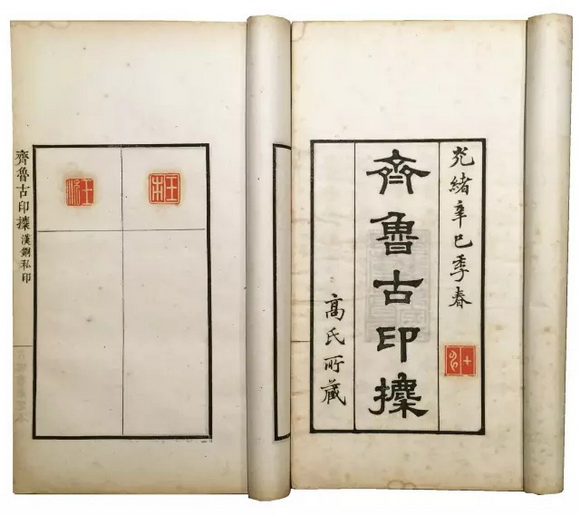 光緒辛巳季春
齊魯古印攈
高氏所藏
齊魯古印攈 漢銅私印